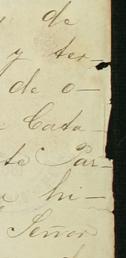 de
y ter-
de o-
Cata
te Par-
a hi-
Señor
de